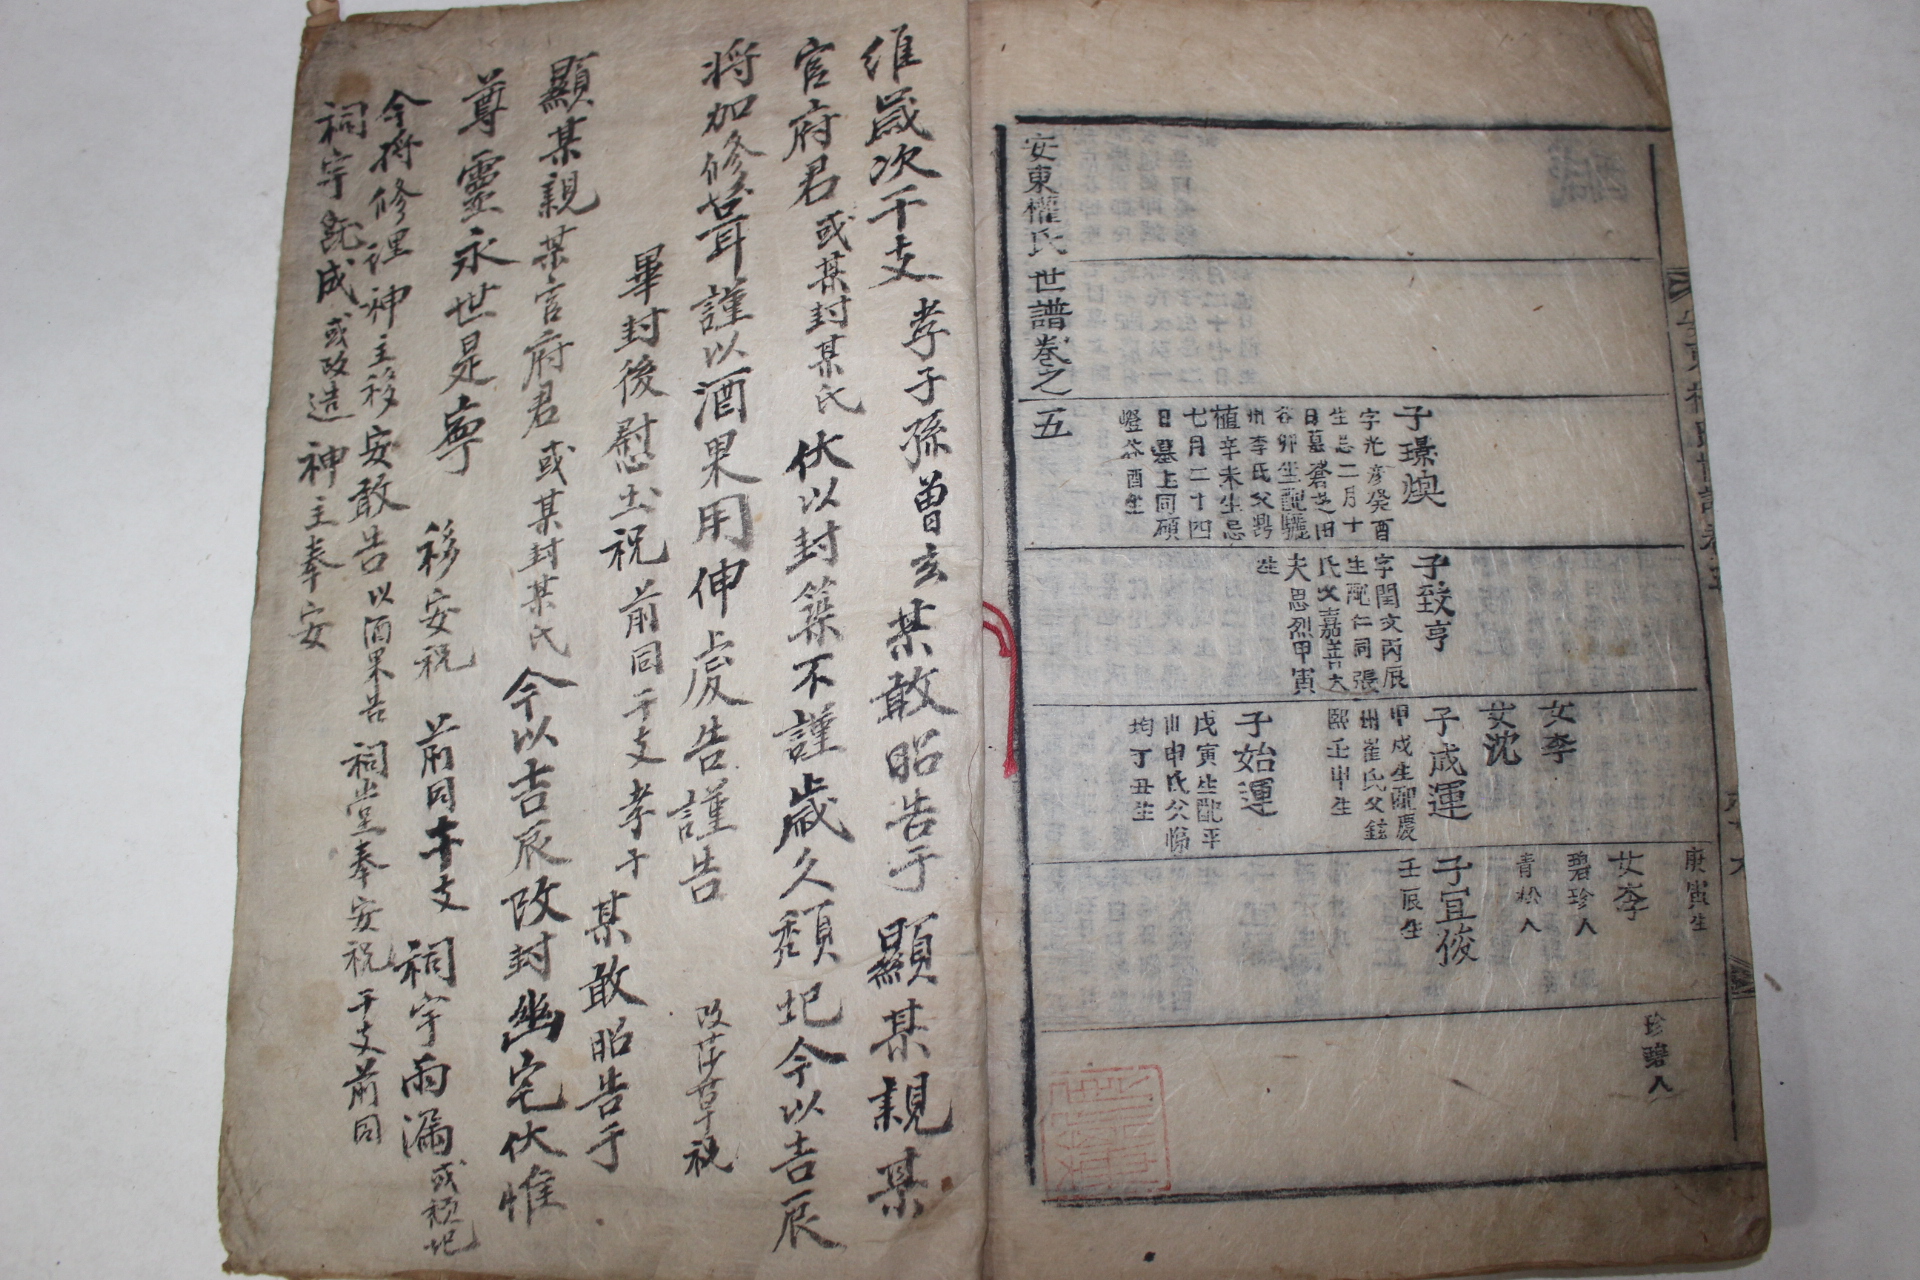 庚寅生
珍碧人
女李
碧珍人
女李
青松人
女沈
子宜俊
壬辰生
子成運
甲戌生配慶
州崔氏父鉉
熙壬申生
子始運
戊寅生配平
山申氏父悌
均丁丑生
子致亨
字閏文丙辰
生配仁同張
氏父嘉善大
夫思烈甲寅
生
子璟煥
字光彦癸酉
生忌二月十
日墓蒼芝田
谷卯坐配驪
州李氏父鼎
植辛未生忌
七月二十四
日墓上同碩
嶝谷酉坐
安東權氏世譜卷之五
維歲次干支 孝子孫曾玄某敢昭告于 顯某親某
官府君或某封某氏 伏以封築不謹歲久頹圮今以吉辰
將加修葺謹以酒果用伸虔告謹告 改莎草祝
畢封後慰土祝 前同干支孝子某敢昭告于
顯某親某官府君或某封某氏 今以吉辰改封幽宅伏惟
尊靈永世是寧 移安祝 前同干支 祠宇雨漏或頹圮
今將修理神主移安敢告以酒果告 祠堂奉安祝 干支前同
祠宇旣成或改造 神主奉安